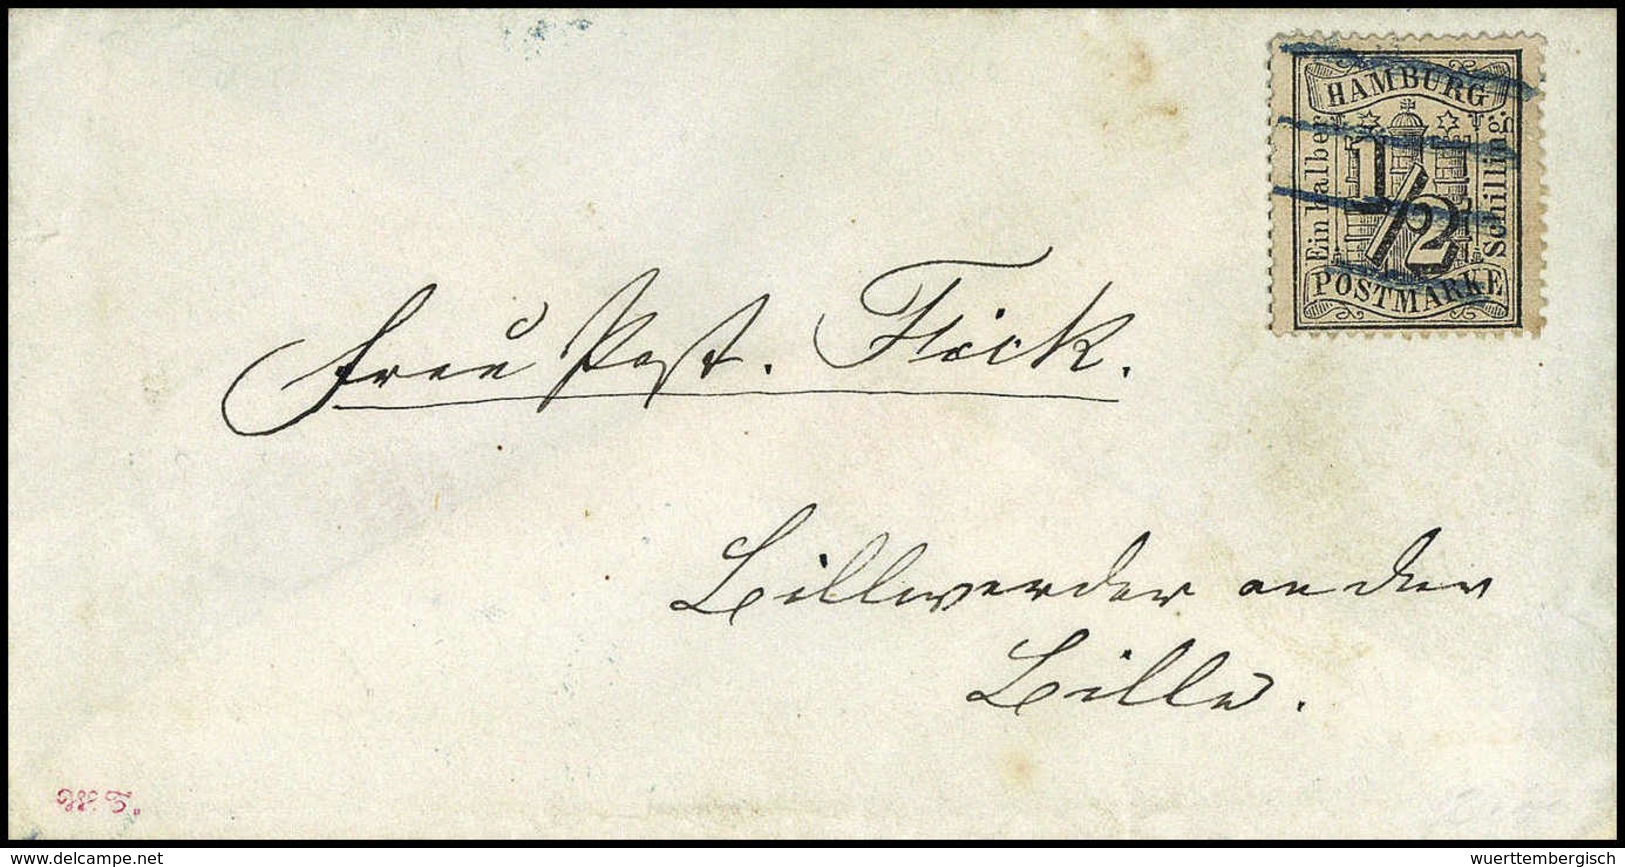 HAMBURG
Ein halber
Schilling
1/2
POSTMARKE
Frau Past. Flöck.
Billwerder an der
Bille.
www.delcampe.net
wuerttembergisch